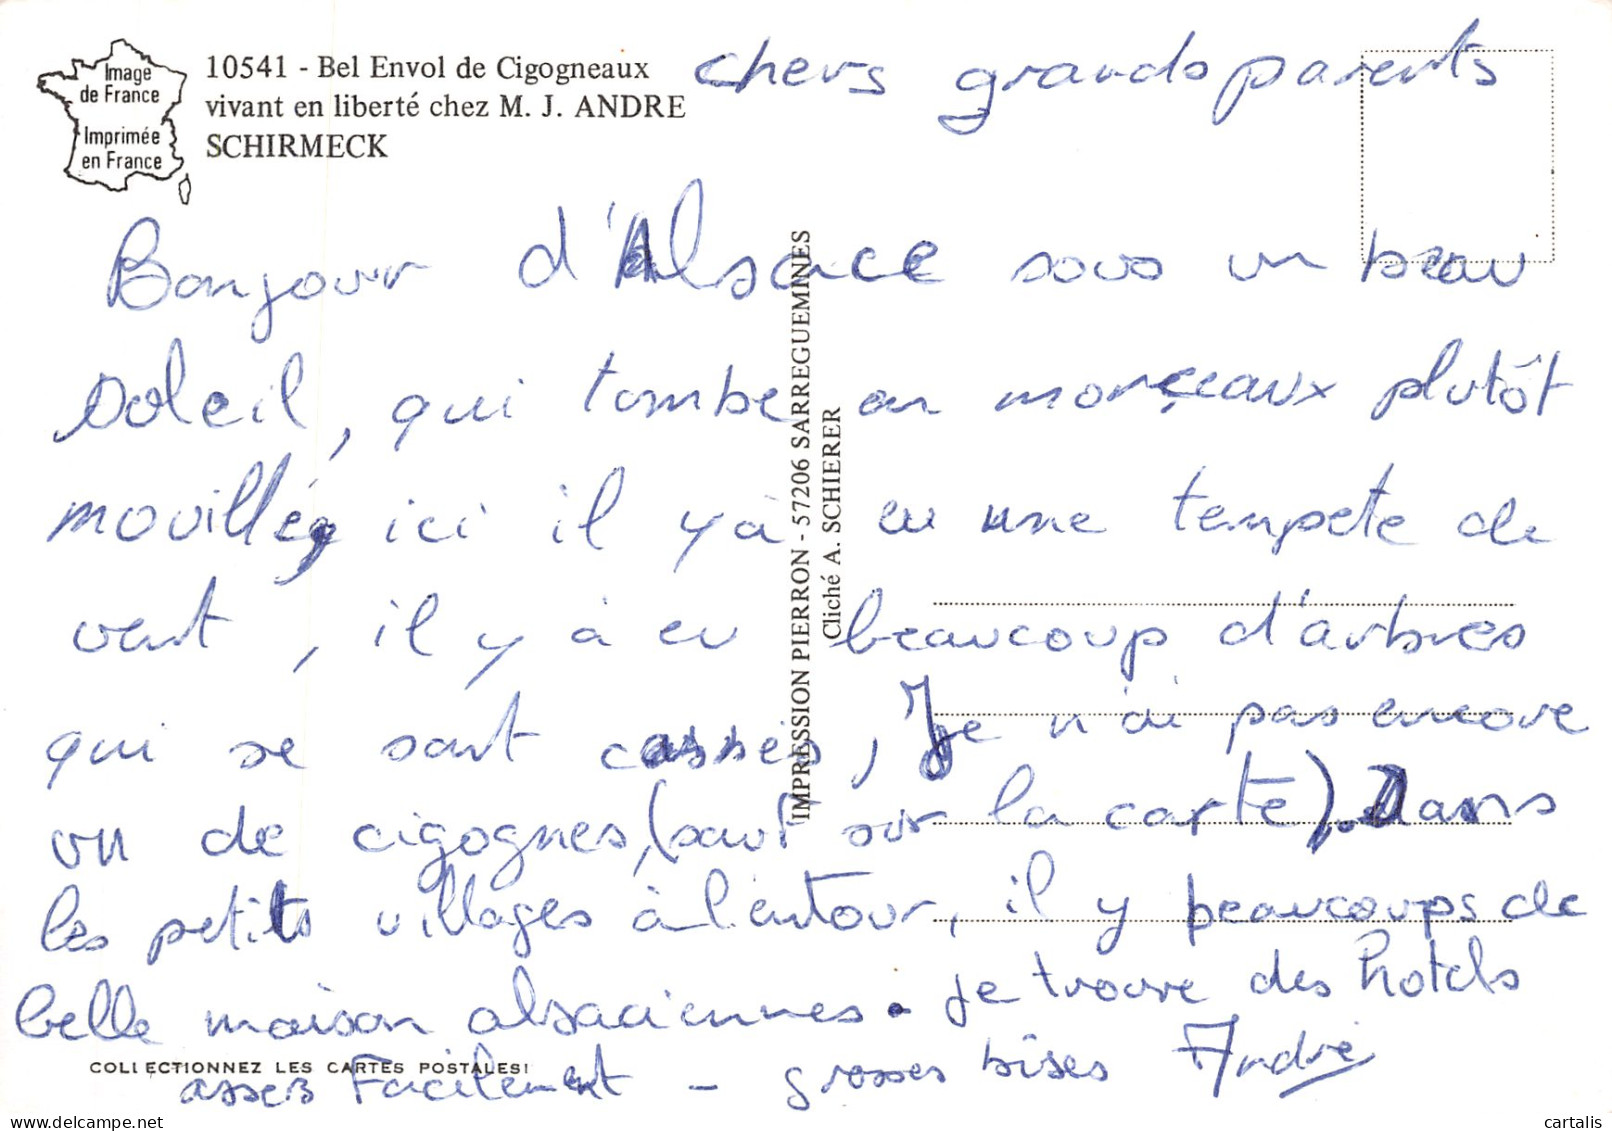 Image
de France
Imprimée
en France
10541 - Bel Envol de Cigogneaux
vivant en liberté chez M. J. ANDRE
SCHIRMECK
chers grands parents
Bonjour d'Alsace sous un beau
soleil, qui tombe en morçeaux plutôt
mouillé, ici il yà eu une tempete de
vent, il y à eu beaucoup d'arbres
qui se sont cassés, Je n'ai pas encore
vu de cigognes, (sauf sur la carte). Dans
les petits villages à l'entour, il y beaucoups de
belle maison alsaciennes. je trouve des hotels
asses facilement - grosses bises André
IMPRESSION PIERRON - 57206 SARREGUEMINES
Cliché A. SCHIERER
COLLECTIONNEZ LES CARTES POSTALES!
delcampe.net
cartalis